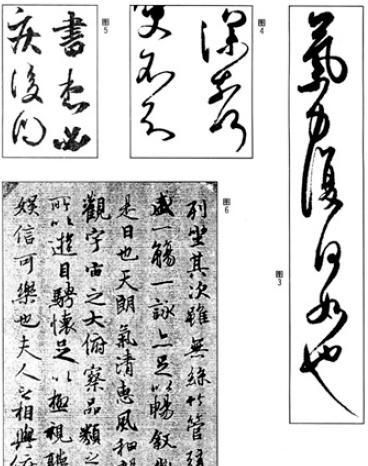 氣力復何如也
图3
图4
書
疾後
图5
图6
列坐其次雖無絲竹管弦
盛一觴一詠亦足以暢叙幽
是日也天朗氣清惠風和暢
觀宇宙之大俯察品類之
所以遊目騁懷足以極視聽
娛信可樂也夫人之相與俯